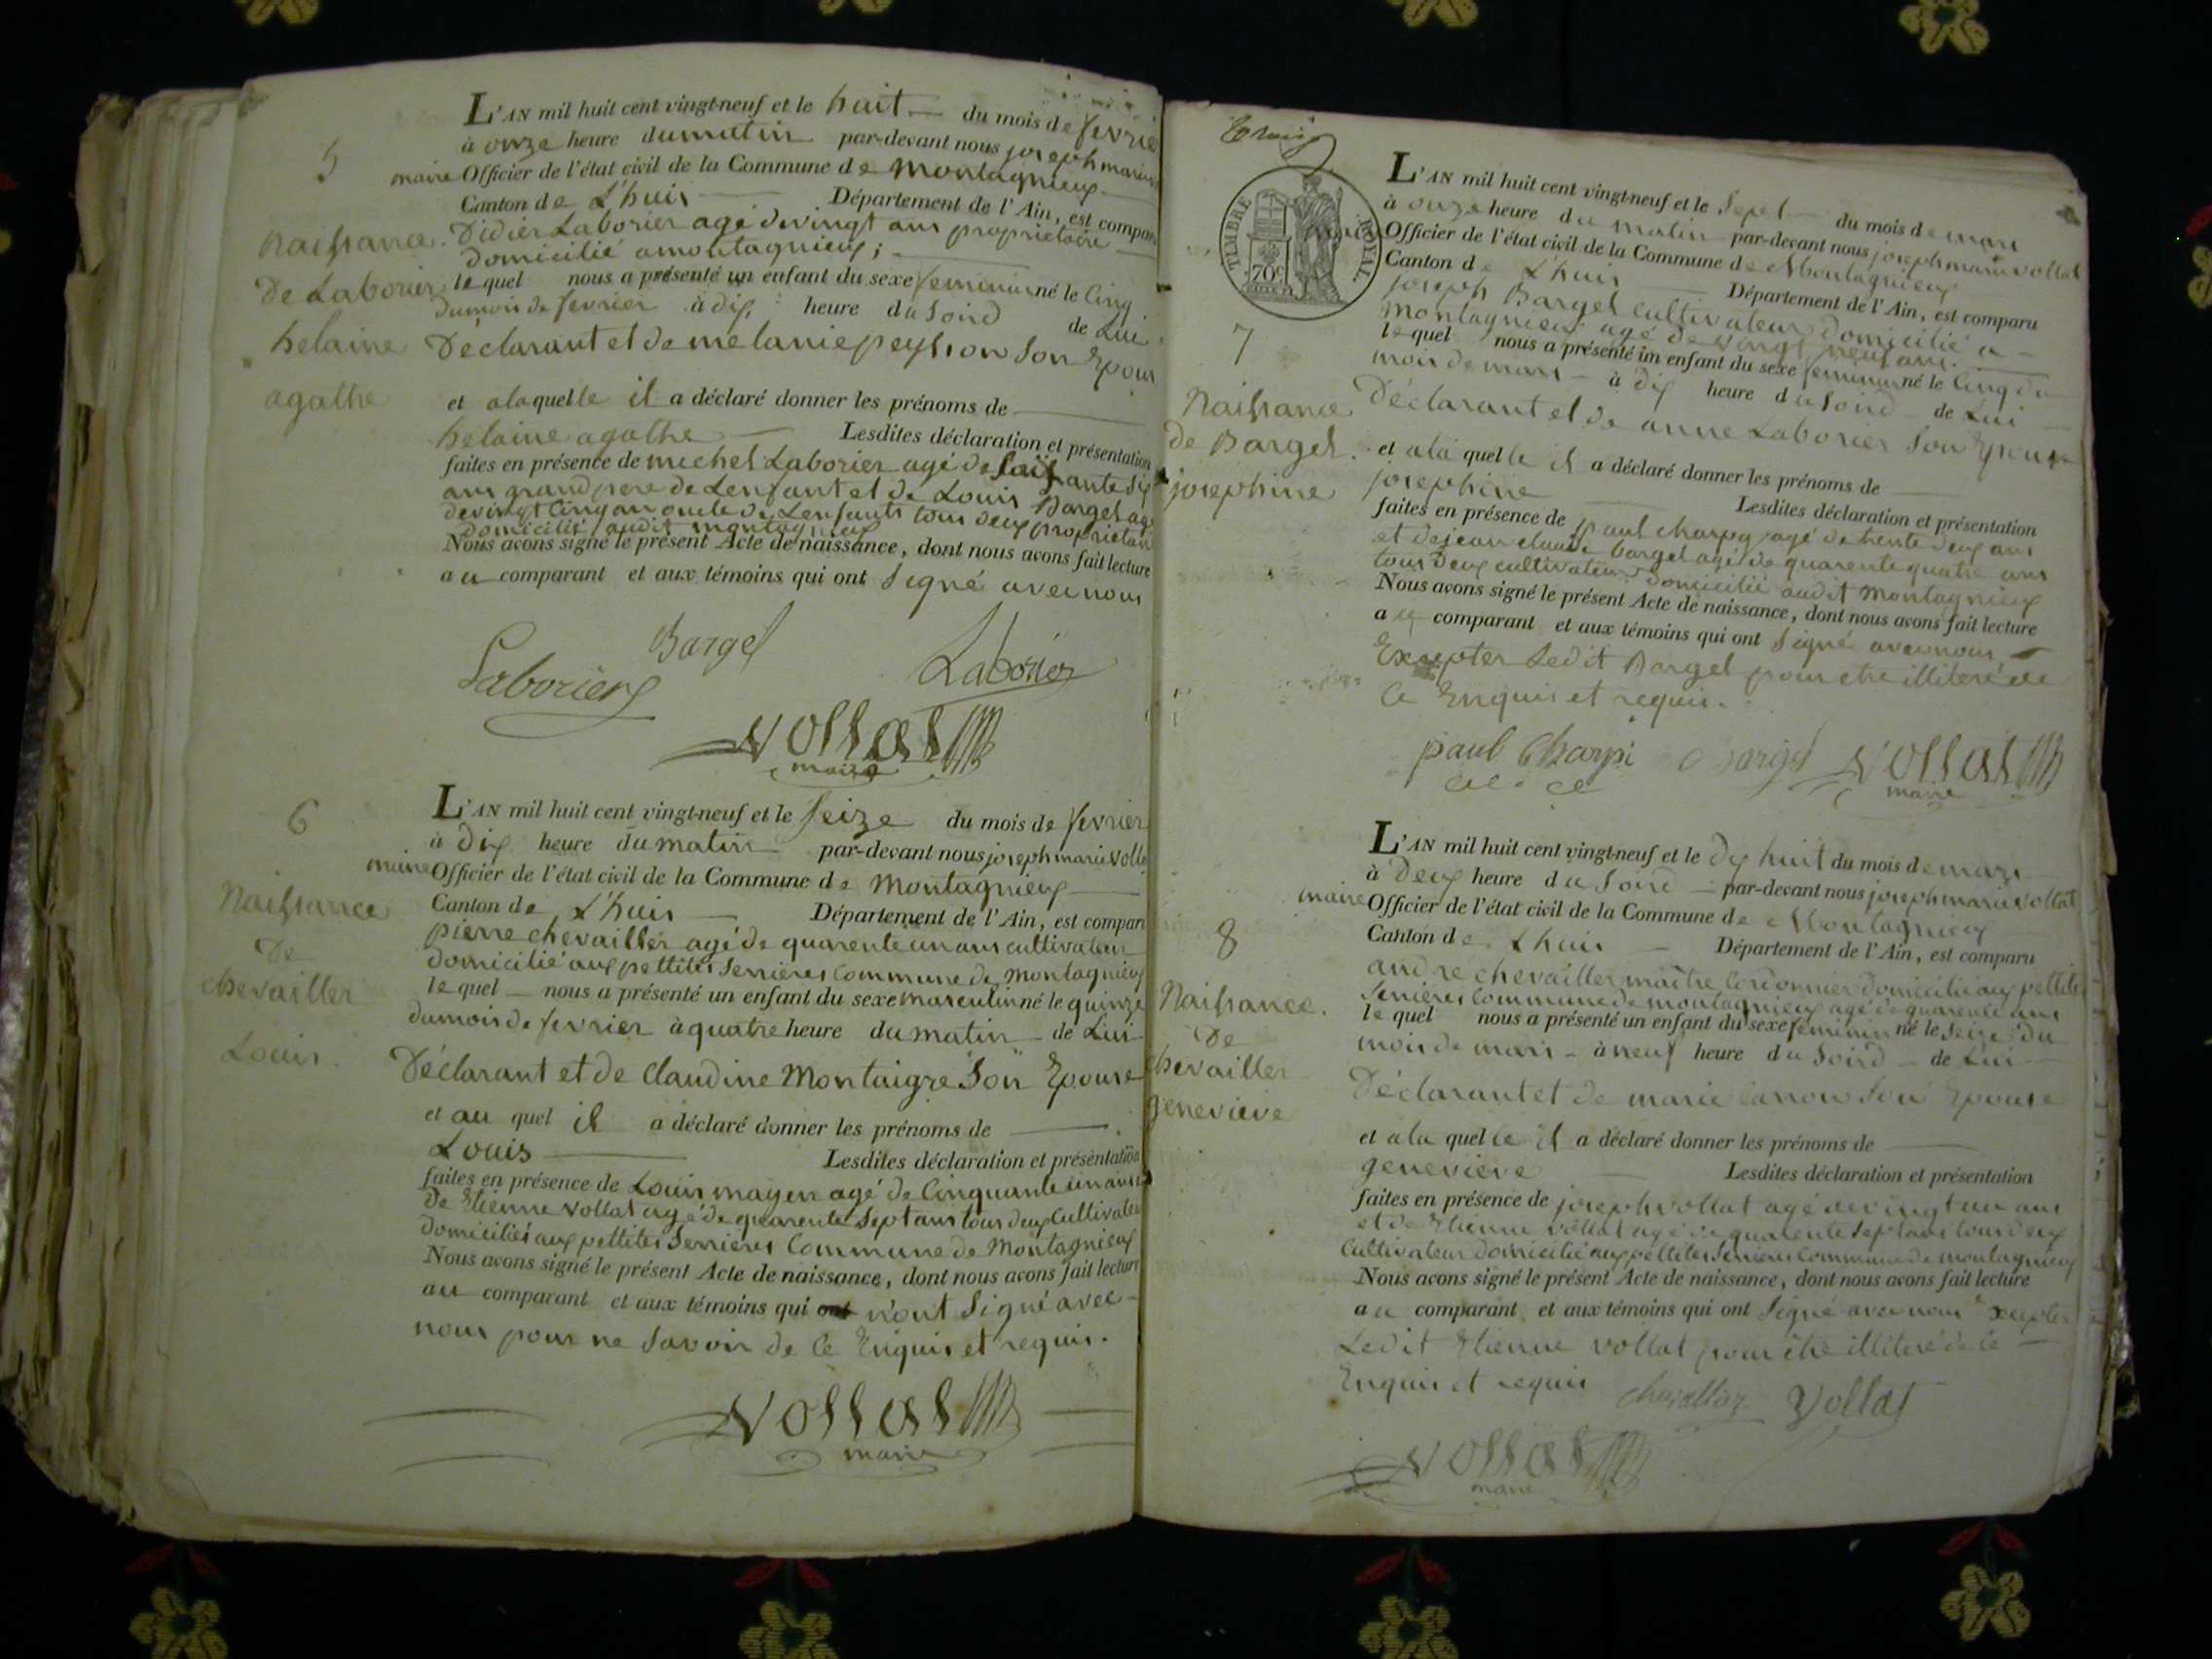 5
Naissance
De Laborier
helaine
agathe
L'AN mil huit cent vingt-neuf et le huit du mois de fevrier
à onze heure du matin par-devant nous joseph marie
maire Officier de l'état civil de la Commune de Montagnieux
Canton de L'huis Département de l'Ain, est comparu
Didier Laborier agé de vingt ans proprietaire
domicilié a montagnieux;
le quel nous a présenté un enfant du sexe feminin né le Cinq
du mois de fevrier à dix heure du soird de Lui
Déclarant et de melanie peysson Son Epouse
et a laquelle il a déclaré donner les prénoms de
helaine agathe Lesdites déclaration et présentation
faites en présence de michel Laborier agé de soixante six
ans grand pere de Lenfant et de Louis Bargel agé
de vingt Cinq an oncle de Lenfants tous deux proprietaire
domicilié audit montagnieux
Nous avons signé le présent Acte de naissance, dont nous avons fait lecture
au comparant et aux témoins qui ont Signé avec nous
Bargel
Laborier Laborier
Vollat
maire
6
Naissance
De
Chevailler
Louis.
L'AN mil huit cent vingt-neuf et le Seize du mois de fevrier
à Dix heure du matin par-devant nous joseph marie Vollat
maire Officier de l'état civil de la Commune de Montagnieux
Canton de L'huis Département de l'Ain, est comparu
pierre chevailler agé de quarente un ans cultivateur
domicilié aux pettites Serrieres Commune de Montagnieux
le quel nous a présenté un enfant du sexe masculin né le quinze
du mois de fevrier à quatre heure du matin de Lui
Déclarant et de Claudine Montaigre Son Epouse
et au quel il a déclaré donner les prénoms de
Louis Lesdites déclaration et présentation
faites en présence de Louis mayen agé de Cinquante un ans et
de Etienne Vollat agé de quarente Sept ans tous deux Cultivateur
domiciliés aux pettites Serrieres Commune de Montagnieux
Nous avons signé le présent Acte de naissance, dont nous avons fait lecture
au comparant et aux témoins qui ont n'ont Signé avec
nous pour ne Savoir de Ce Enquis et requis.
Vollat
maire
TIMBRE ROYAL
70c
7
Naissance
de Bargel.
josephine
L'AN mil huit cent vingt-neuf et le Sept du mois de mars
à onze heure du matin par-devant nous joseph marie vollat
Officier de l'état civil de la Commune de Montagnieux
Canton de L'huis Département de l'Ain, est comparu
joseph Bargel cultivateur domicilié a
Montagnieux agé de vingt neuf ans.
le quel nous a présenté un enfant du sexe feminin né le Cinq du
mois de mars à dix heure du soird de Lui
Déclarant et de anne Laborier Son Epouse
et a la quelle il a déclaré donner les prénoms de
josephine Lesdites déclaration et présentation
faites en présence de paul charpy agé de trente deux ans
et de jean claude bargel agé de quarente quatre ans
tous Deux cultivateurs domicilié audit Montagnieux
Nous avons signé le présent Acte de naissance, dont nous avons fait lecture
au comparant et aux témoins qui ont Signé avec nous
Excepter Ledit Bargel pour etre illiteré de
Ce Enquis et requis.
paul Charpi Bargel Vollat
maire
8
Naissance.
De
Chevailler
genevieve
L'AN mil huit cent vingt-neuf et le dix huit du mois de mars
à Deux heure du Soird par-devant nous joseph marie Vollat
maire Officier de l'état civil de la Commune de Montagnieux
Canton de L'huis Département de l'Ain, est comparu
andre chevailler maitre Cordonnier domicilié aux pettites
Serrieres Commune de montagnieux agé de quarente ans
le quel nous a présenté un enfant du sexe feminin né le Seize du
mois de mars à neuf heure du Soird de Lui
Déclarant et de marie Son Epouse
et a la quelle il a déclaré donner les prénoms de
genevieve Lesdites déclaration et présentation
faites en présence de joseph vollat agé de vingt un ans
et de Etienne vollat agé de quarente Sept ans tous deux
Cultivateur domicilié aux pettites Serrieres Commune de montagnieux
Nous avons signé le présent Acte de naissance, dont nous avons fait lecture
au comparant et aux témoins qui ont Signé avec nous Excepter
Ledit Etienne vollat pour être illiteré de Ce
Enquis et requis chevallier Vollat
Vollat
maire